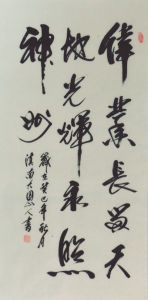 偉業長留天
地光輝永照
神州
歲在癸巳年秋月
滇南大園山人書